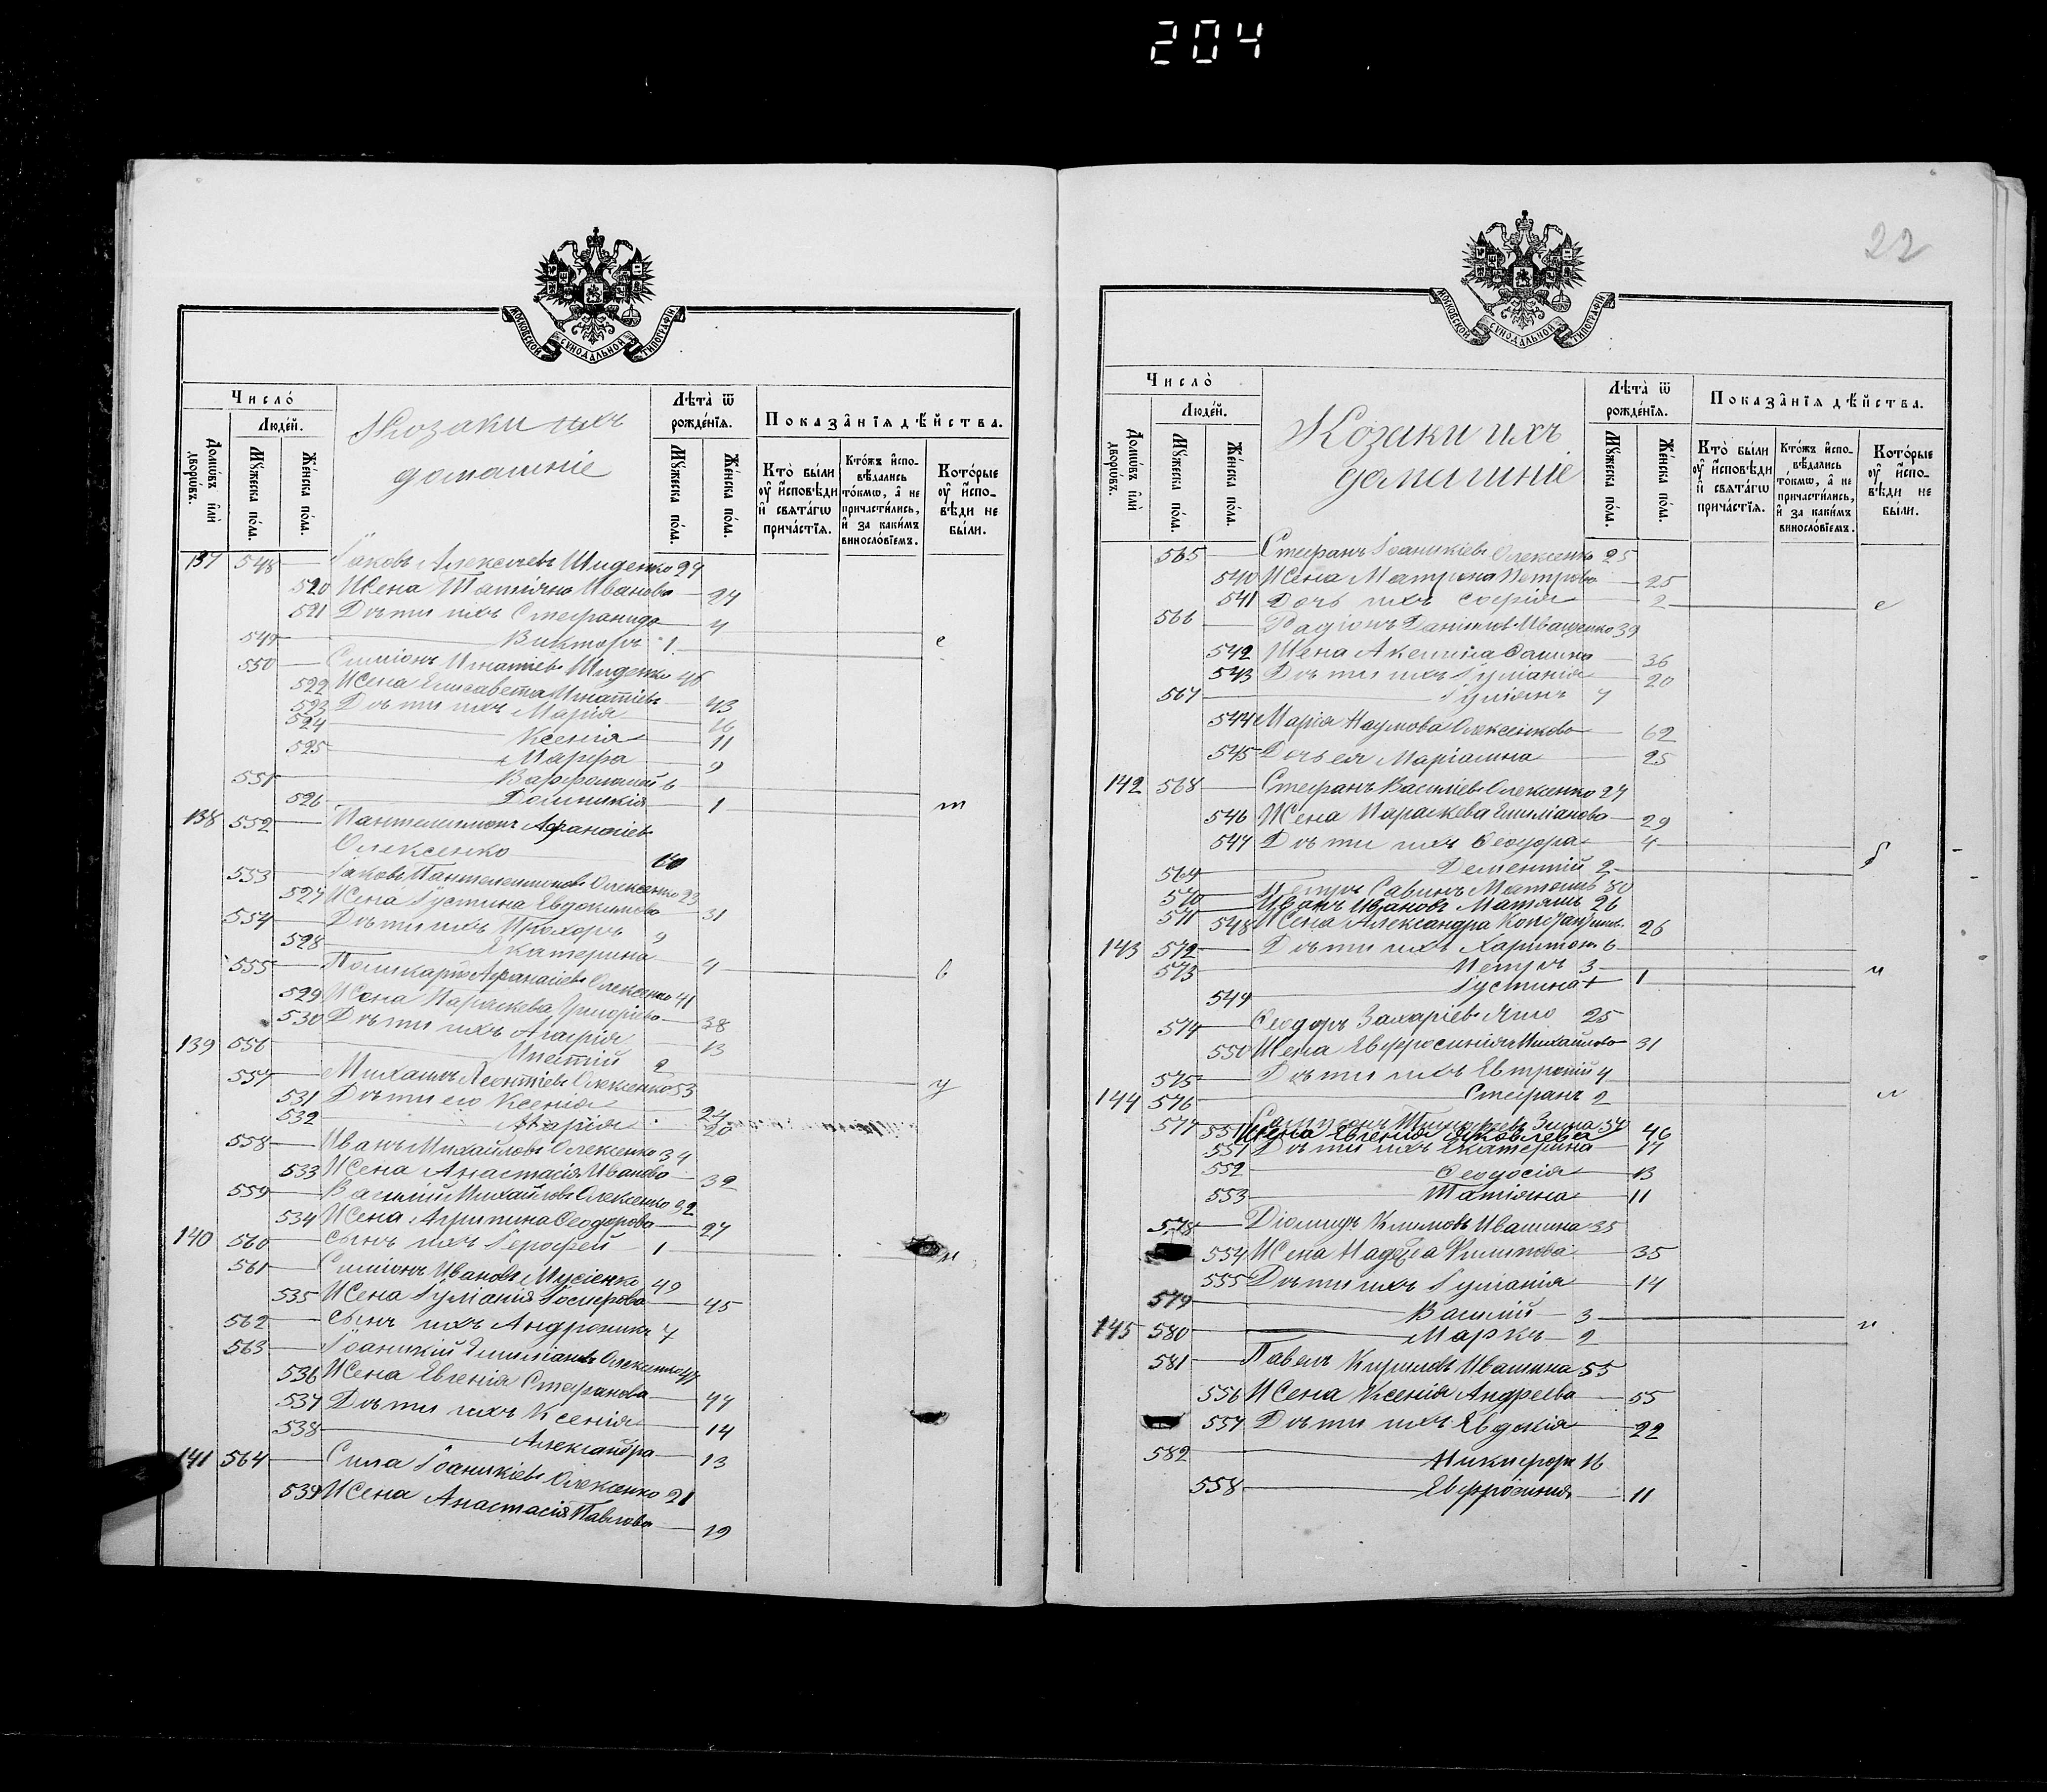 204
МОСКОВСКОЙ СѴНОДАЛЬНОЙ ТИПОГРАФІИ
Число̀
Люде́й.
Домѡ́въ и҆лѝ дворѡ́въ.
Мꙋ́жеска по́ла.
Же́нска по́ла.
Козаки ихъ
домашніе
Лѣ́та ѿ рожде́нїѧ.
Мꙋ́жеска по́ла.
Же́нска по́ла.
Показа̂нїѧ дѣ́йства.
Кто̀ бы́ли оу҆ и҆сповѣ́ди и҆ свѧта́гѡ прича́стїѧ.
Кто́жъ и҆спо-вѣ́дались то́кмѡ, а҆ не причасти́лись, и҆ за каки́мъ винослові́емъ.
Кото́рые оу҆ и҆спо-вѣ́ди не бы́ли.
137 548 Іаковъ Алексѣевъ Шиденко 29
520 Жена Татіана Иванова 24
521 Дѣти ихъ Стефанида 4
549 Викторъ 1 с
550 Симіонъ Игнатіевъ Шиденко 46
522 Жена Елисавета Игнатіев 43
523 Дѣти ихъ Марія 16
524 Ксенія 11
525 Марфа 9
551 Варфоломей 6
526 Домникія 1 т
138 552 Пантелеимонъ Афанасіев
Олексенко 60
553 Іаковъ Пантелеимоновъ Олексенко 23
527 Жена Іустина Евдокимова 31
554 Дѣти ихъ Прохоръ 9
528 Екатерина 4 в
555 Поликарпъ Афанасіевъ Олексенко 41
529 Жена Параскева Григоріева 38
530 Дѣти ихъ Агафія 13
139 556 Ипатій 2
557 Михаилъ Леонтіевъ Олексенко 53 у
531 Дѣти его Ксенія 24
532 Марія 20
558 Иванъ Михайловъ Олексенко 34
533 Жена Анастасія Иванова 32
559 Василій Михайловъ Олексенко 32
534 Жена Агрипина Феодорова 27
140 560 сынъ ихъ Іерофей 1 и
561 Симіонъ Ивановъ Мусіенко 49
535 Жена Іуліанія Іосифова 45
562 сынъ ихъ Андроникъ 7
563 Іоаникій Емиліановъ Олексенко 47
536 Жена Евгенія Стефанова 44
537 Дѣти ихъ Ксенія 14
538 Александра 13
141 564 Сила Іоаникіевъ Олексенко 21
539 Жена Анастасія Павлова 19
22
МОСКОВСКОЙ СѴНОДАЛЬНОЙ ТИПОГРАФІИ
Число̀
Люде́й.
Домѡ́въ и҆лѝ дворѡ́въ.
Мꙋ́жеска по́ла.
Же́нска по́ла.
Козаки ихъ
домашніе
Лѣ́та ѿ рожде́нїѧ.
Мꙋ́жеска по́ла.
Же́нска по́ла.
Показа̂нїѧ дѣ́йства.
Кто̀ бы́ли оу҆ и҆сповѣ́ди и҆ свѧта́гѡ прича́стїѧ.
Кто́жъ и҆спо-вѣ́дались то́кмѡ, а҆ не причасти́лись, и҆ за каки́мъ винослові́емъ.
Кото́рые оу҆ и҆спо-вѣ́ди не бы́ли.
565 Стефанъ Іоаникіевъ Олексенко 25
540 Жена Матрона Петрова 25
541 Дочь ихъ софія 2 с
566 Радіонъ Даниловъ Иващенко 39
542 Жена Акелина Фомина 36
543 Дѣти ихъ Іуліанія 20
567 Іуліанъ 7
544 Марія Наумова Олексенкова 62
545 Дочь ея Маріамна 25
142 568 Стефанъ Васильевъ Олексенко 27
546 Жена Параскева Емиліанова 29
547 Дѣти ихъ Феодора 4 б
569 Дементій 2
570 Петръ Савинъ Матяшъ 80
571 Иванъ Ивановъ Матяшъ 26
548 Жена Александра 26
143 572 Дѣти ихъ Харитонъ 6
573 Петръ 3 и
549 Іустина 1
574 Феодоръ Захаріевъ 25
550 Жена Евфросинія Михайлова 31
575 Дѣти ихъ Евтропій 4
144 576 Стефанъ 2 и
577 Сампсонъ Тимофеевъ Зима 50
551 Жена Евгенія Яковлева 46
551 Дѣти ихъ Екатерина 17
552 Феодосія 13
553 Татіана 11
578 Діомидъ Климовъ Ивашина 35
554 Жена Надежда Филипова 35
555 Дѣти ихъ Іуліанія 14
579 Василій 3 и
145 580 Маркъ 2
581 Павелъ Кириловъ Ивашина 55
556 Жена Ксенія Андреева 55
557 Дѣти ихъ Евдокія 22
582 Никифоръ 16
558 Евфросинія 11